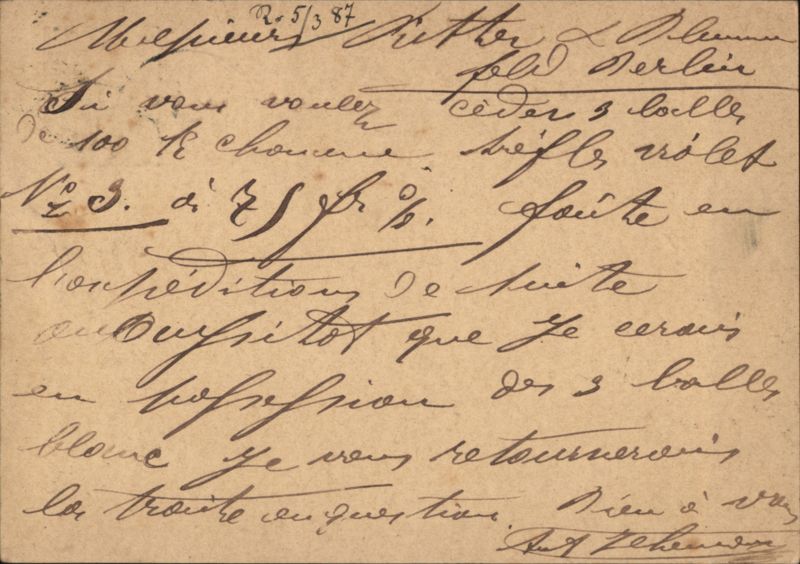 R. 5/3 87
Messieurs Rutter & Blumen
feld Berlin
Si vous voulez céder 3 balles
de 100 K chacune trèfles violet
No 3. à 75 fr %. faite en
l'expéditions de suite
aussitot que je cerais
en possession des 3 balles
blanc je vous retournerais
la traite en question. Bien à vous